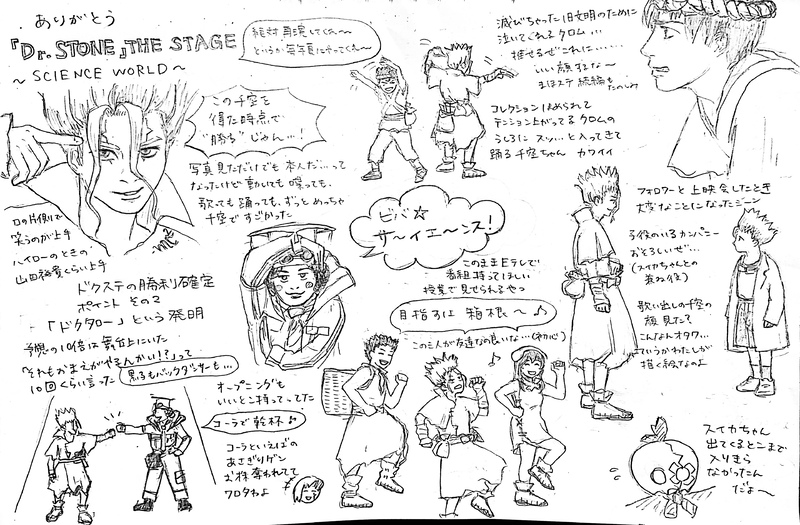 ありがとう
『Dr.STONE』THE STAGE
～SCIENCE WORLD～
絶対再現してくれ～
というか毎年夏にやってくれ～
この千空を
得た時点で
"勝ち"じゃん…!
写真見ただけでも本人だ…って
なったけど動いても喋っても、
歌っても踊っても、ずっとめっちゃ
千空ですごかった
口の片側で
笑うのが上手
ハイローのときの
山田裕貴くらい上手
ドクステの勝利確定
ポイント その2
「ドクタロー」という発明
予想の10倍は舞台上にいた
それもおまえがやるんかい!?って
10回くらい言った
黒子もバックダンサーも…
オープニングも
いいとこ持ってってた
コーラで乾杯♪
コーラといえばの
あさぎりゲン
お株奪われてて
ワロタわよ
滅びちゃった旧文明のために
泣いてくれるクロム…
推せるぜこれに……
いい顔するな～
まほステ続編もたのしみ
コレクションほめられて
テンション上がってるクロムの
うしろにスッ…と入ってきて
踊る千空ちゃん カワイイ
ビバ☆
サ～イエ～ンス!
このままEテレで
番組持ってほしい
授業で見せられるやつ
目指すは 箱根～♪
この三人が友達なの良いな…(初心)
フォロワーと上映会したとき
大変なことになったシーン
子役のいるカンパニー
おそろしいぜ…
(スイカちゃんとの
兼ね役)
歌い出しの千空の
顔見たて
こんなんオタク…
ていうかわたしが
描く絵なのよ
スイカちゃん
出てくるとこまで
入りきら
なかったん
だょ～